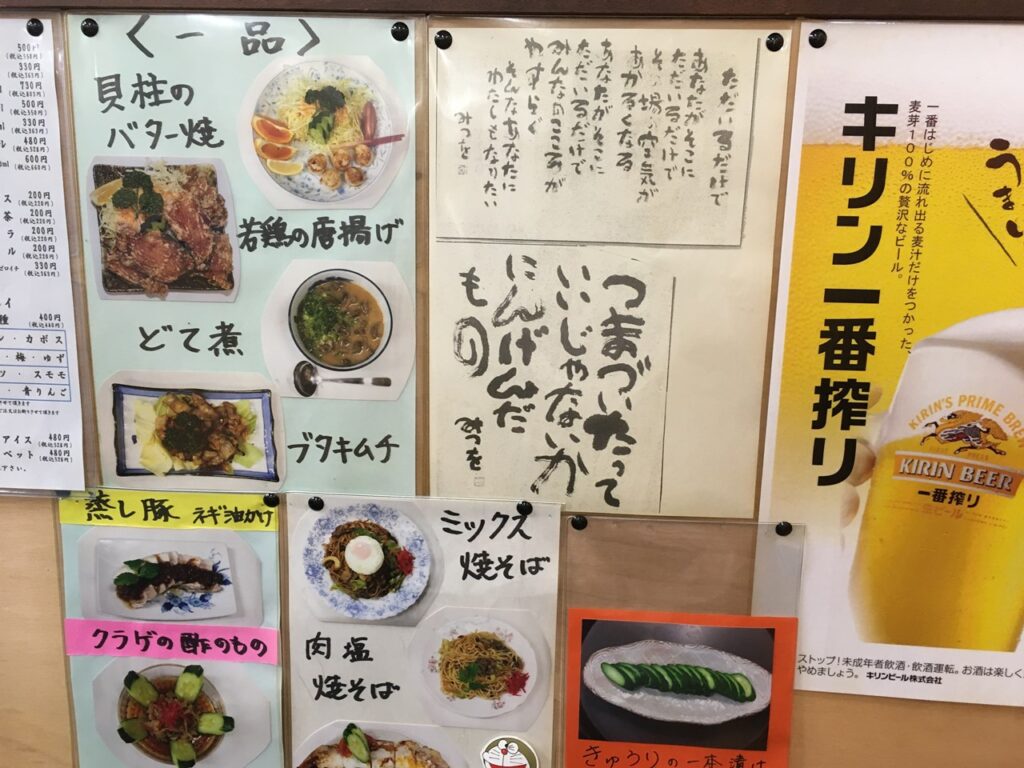 500円
(税込550円)
330円
(税込363円)
730円
(税込803円)
500円
(税込550円)
330円
(税込363円)
480円
(税込528円)
600円
(税込660円)
200円
(税込220円)
200円
(税込220円)
200円
(税込220円)
200円
(税込220円)
330円
(税込363円)
400円
(税込440円)
カボス
梅・ゆず
スモモ
青りんご
アイス 480円
(税込528円)
ベット 480円
(税込528円)
〈一品〉
貝柱の
バター焼
若鶏の唐揚げ
どて煮
ブタキムチ
蒸し豚 ネギ油かけ
クラゲの酢のもの
ミックス
焼そば
肉塩
焼そば
きゅうりの一本漬け
ただいるだけで
あなたがそこに
ただいるだけで
その場の空気が
あかるくなる
あなたがそこに
ただいるだけで
みんなのこころが
やすらぐ
そんなあなたに
わたしもなりたい
みつを
つまづいたって
いいじゃないか
にんげんだ
もの
みつを
うまい
一番はじめに流れ出る麦汁だけをつかった、
麦芽100%の贅沢なビール。
キリン一番搾り
KIRIN'S PRIME BRE
KIRIN BEER
一番搾り
生ビール
ストップ!未成年者飲酒・飲酒運転。お酒は楽しく
やめましょう。 キリンビール株式会社